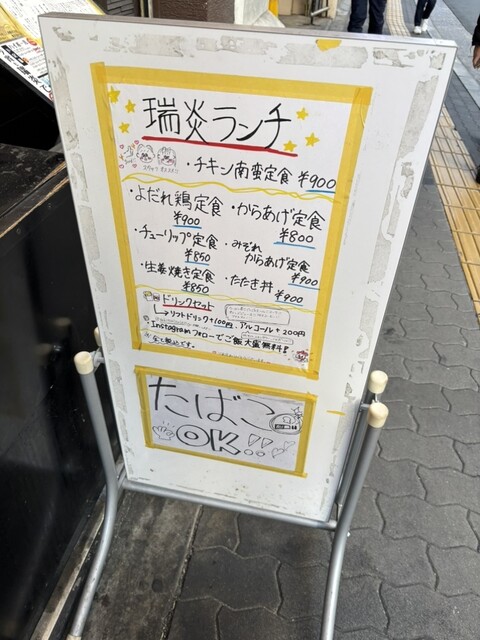 瑞炎ランチ
・チキン南蛮定食 ¥900
・よだれ鶏定食 ¥900
・からあげ定食 ¥800
・チューリップ定食 ¥850
・みぞれからあげ定食 ¥900
・生姜焼き定食 ¥850
・たたき丼 ¥900
ドリンクセット
→ソフトドリンク+100円、アルコール+200円
Instagramフォローでご飯大盛無料!!
全て税込です。
たばこ
OK!!